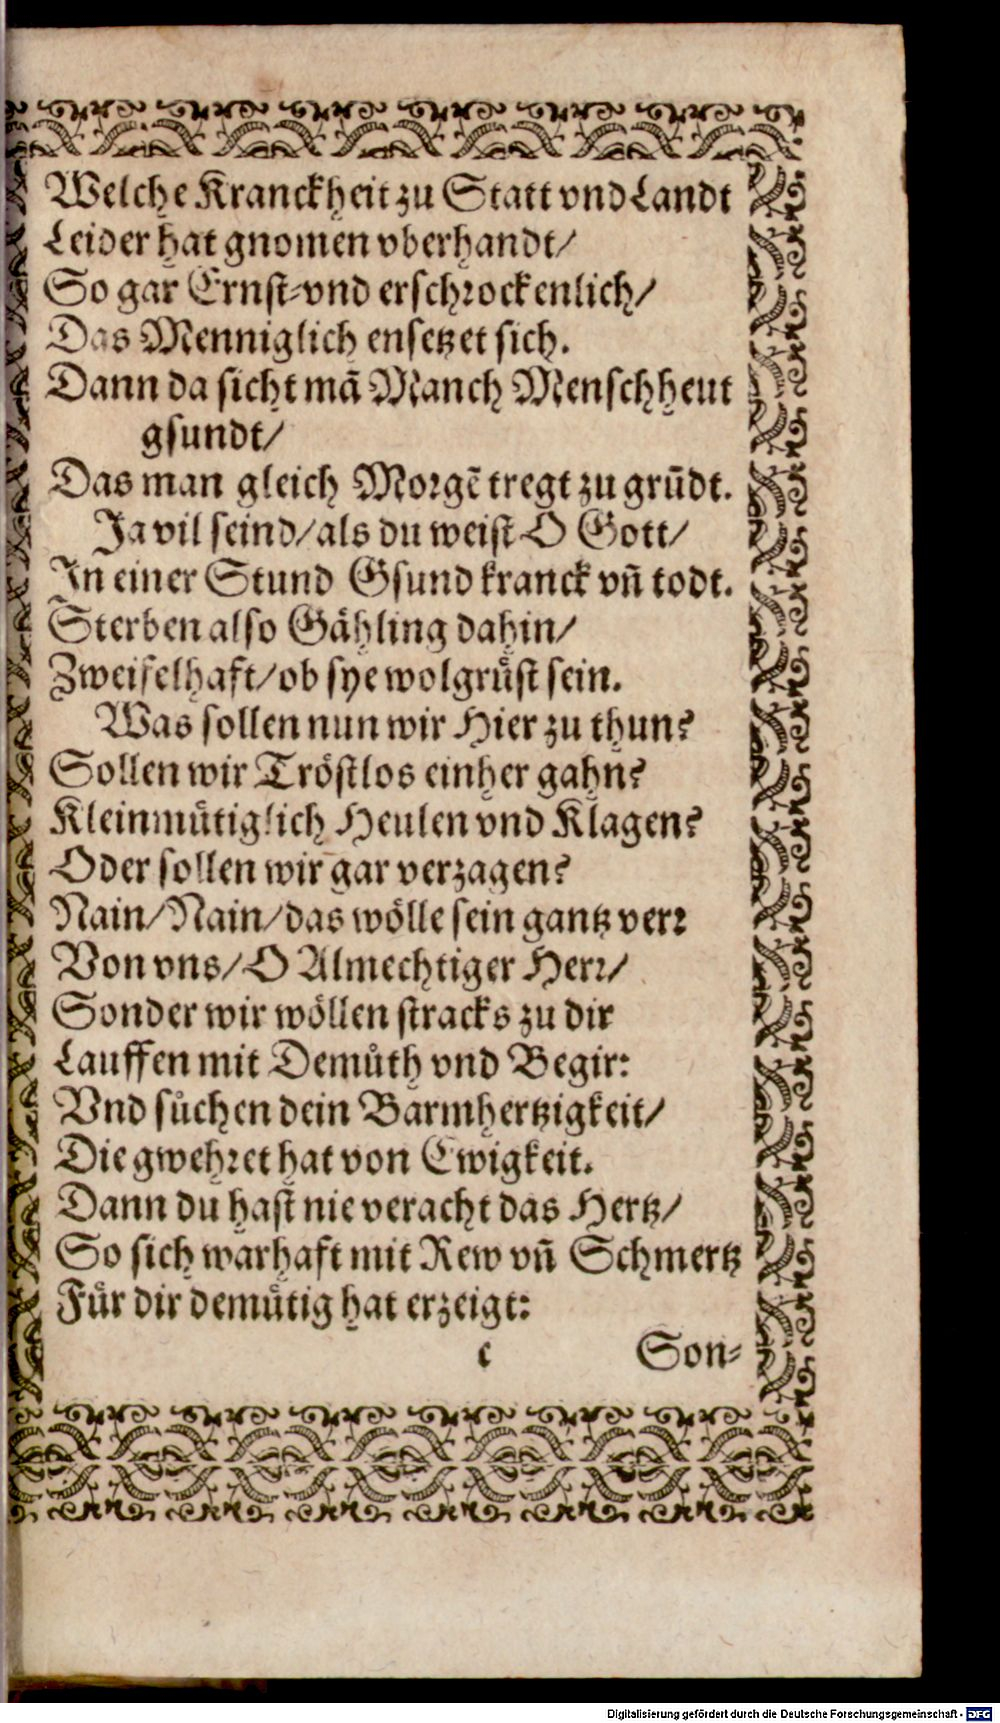 Welche Kranckheit zu Statt vnd Landt
Leider hat gnomen vberhandt/
So gar Ernst-vnd erschrockenlich/
Das Menniglich ensetzet sich.
Dann da sicht mã Manch Mensch heut
gsundt/
Das man gleich Morgẽ tregt zu grũdt.
Ja vil seind/als du weist O Gott/
In einer Stund Gsund kranck vñ todt.
Sterben also Gähling dahin/
Zweifelhaft/ob sye wolgrüst sein.
Was sollen nun wir Hier zu thun?
Sollen wir Tröstlos einher gahn?
Kleinmütiglich Heulen vnd Klagen?
Oder sollen wir gar verzagen?
Nain/Nain/das wölle sein gantz verr
Von vns/O Almechtiger Herr/
Sonder wir wöllen stracks zu dir
Lauffen mit Demůth vnd Begir:
Vnd sůchen dein Barmhertzigkeit/
Die gwehret hat von Ewigkeit.
Dann du hast nie veracht das Hertz/
So sich warhaft mit Rew vñ Schmertz
Für dir demütig hat erzeigt:
c Son-
Digitalisierung gefördert durch die Deutsche Forschungsgemeinschaft - DFG